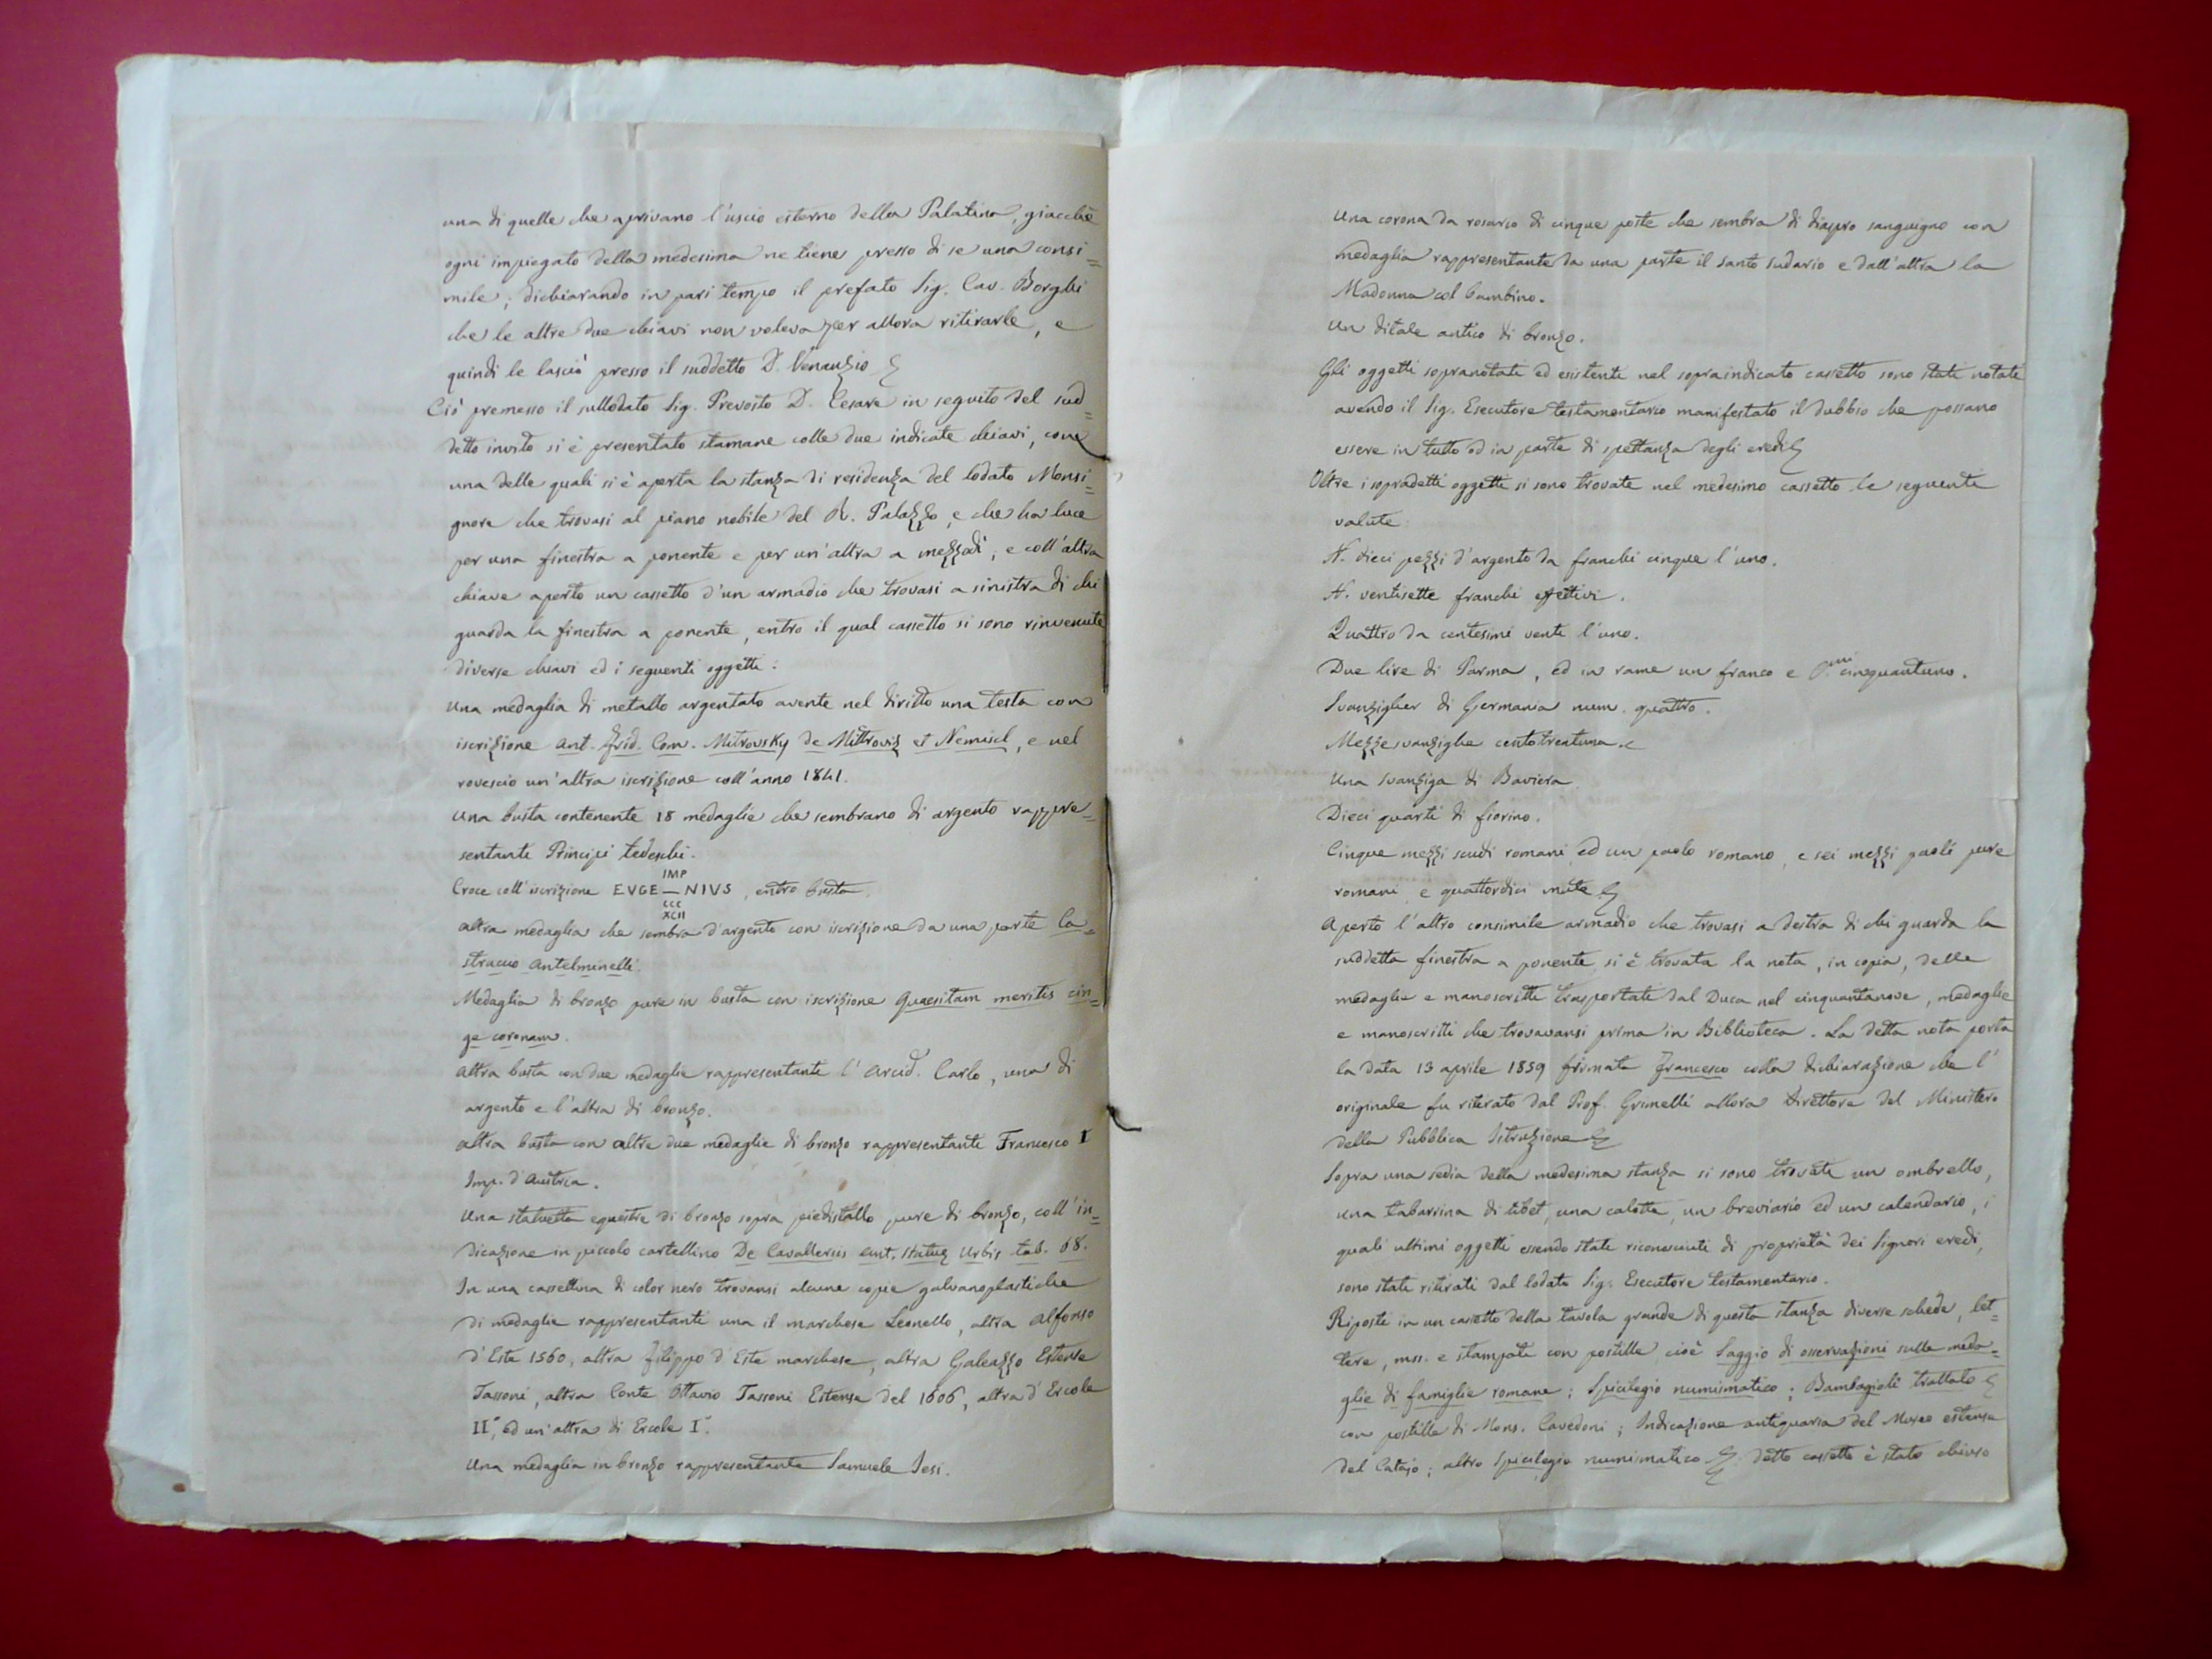 una di quelle che aprivano l'uscio esterno della Palatina, giacchè
ogni impiegato della medesima ne tiene presso di se una consi=
mile; dichiarando in pari tempo il prefato Sig. Cav. Borghi
che le altre due chiavi non voleva per allora ritirarle, e
quindi le lasciò presso il suddetto D. Venanzio
Ciò premesso il sullodato Sig. Prevosto D. Cesare in seguito del sud=
detto invito si è presentato stamane colle due indicate chiavi, con
una delle quali si è aperta la stanza di residenza del lodato Monsi=
gnore che trovasi al piano nobile del R. Palazzo, e che ha luce
per una finestra a ponente e per un'altra a mezzodì, e coll'altra
chiave aperto un cassetto d'un armadio che trovasi a sinistra di chi
guarda la finestra a ponente, entro il qual cassetto si sono rinvenute
diverse chiavi ed i seguenti oggetti:
Una medaglia di metallo argentato avente nel diritto una testa con
iscrizione Ant. Frid. Com. Mitrovsky de Mittroviz et Nemisl, e nel
rovescio un'altra iscrizione coll'anno 1841.
Una busta contenente 18 medaglie che sembrano di argento rappre=
sentante Principi tedeschi.
IMP
Croce coll'iscrizione EVGE—NIVS, entro busta.
CCC
XCII
Altra medaglia che sembra d'argento con iscrizione da una parte Ca=
struccio Antelminelli.
Medaglia di bronzo pure in busta con iscrizione Quaesitam meritis cin=
ge coronam.
Altra busta con due medaglie rappresentante l'Arcid. Carlo, una di
argento e l'altra di bronzo.
Altra busta con altre due medaglie di bronzo rappresentante Francesco I
Imp. d'Austria.
Una statuetta equestre di bronzo sopra piedistallo pure di bronzo, coll'in=
dicazione in piccolo cartellino De Cavalleriis ant. statuæ Urbis tab. 68.
In una cassettina di color nero trovansi alcune copie galvanoplastiche
di medaglie rappresentanti una il marchese Leonello, altra Alfonso
d'Este 1560, altra Filippo d'Este marchese, altra Galeazzo Estense
Tassoni, altra Conte Ottavio Tassoni Estense del 1606, altra d'Ercole
II°, ed un'altra di Ercole I°.
Una medaglia in bronzo rappresentante Samuele Jesi.
Una corona da rosario di cinque poste che sembra di diaspro sanguigno con
medaglia rappresentante da una parte il Santo Sudario e dall'altra la
Madonna col bambino.
Un ditale antico di bronzo.
Gli oggetti sopranotati ed esistenti nel sopraindicato cassetto sono stati notati
avendo il Sig. Esecutore testamentario manifestato il dubbio che possano
essere in tutto od in parte di spettanza degli eredi
Oltre i sopradetti oggetti si sono trovate nel medesimo cassetto le seguenti
valute:
N. dieci pezzi d'argento da franchi cinque l'uno.
N. ventisette franchi effettivi.
Quattro da centesimi venti l'uno.
Due lire di Parma, ed in rame un franco e C.mi cinquantuno.
Svanziger di Germania num. quattro.
Mezze svanzighe centotrentuna.
Una svanziga di Baviera
Dieci quarti di fiorino.
Cinque mezzi scudi romani, ed un paolo romano, e sei mezzi paoli pure
romani, e quattordici mute
Aperto l'altro consimile armadio che trovasi a destra di chi guarda la
suddetta finestra a ponente, si è trovata la nota, in copia, delle
medaglie e manoscritti trasportati dal Duca nel cinquantanove, medaglie
e manoscritti che trovavansi prima in Biblioteca. La detta nota porta
la data 13 aprile 1859 firmata Francesco colla dichiarazione che l'
originale fu ritirato dal Prof. Grimelli allora Direttore del Ministero
della Pubblica Istruzione
Sopra una sedia della medesima stanza si sono trovati un ombrello,
una tabarrina di tibet, una calotta, un breviario ed un calendario, i
quali ultimi oggetti essendo stati riconosciuti di proprietà dei Signori eredi,
sono stati ritirati dal lodato Sig. Esecutore testamentario.
Riposti in un cassetto della tavola grande di questa stanza diverse schede, let=
tere, mss. e stampati con postille, cioè Saggio di osservazioni sulle meda=
glie di famiglie romane; Spicilegio numismatico; Bambagioli trattato
con postille di Mons. Cavedoni; Indicazione antiquaria del Museo estense
del Catajo; altro Spicilegio numismatico detto cassetto è stato chiuso